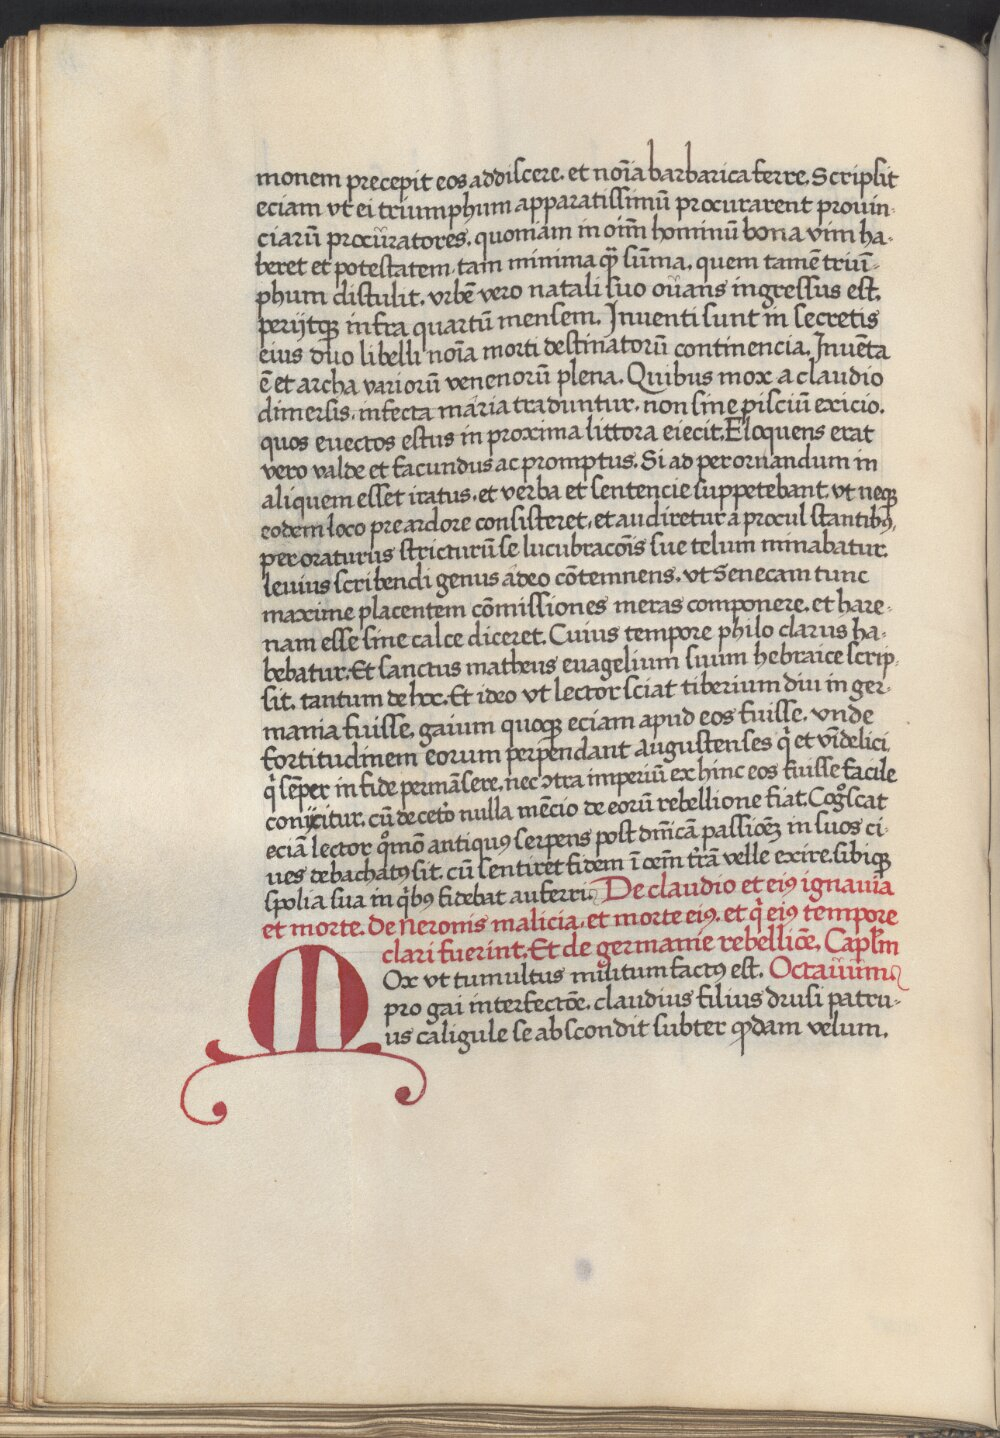 monem precepit eos addiscere. et noīa barbarica ferre. Scripsit
eciam vt ei triumphum apparatissimū procurarent prouin-
ciarū procuratores. quoniam in oīm hominū bona vim ha-
beret et potestatem. tam minima qꝫ sūma. quem tamē triū-
phum distulit. vrbē vero natali suo ouans ingressus est.
perijtqꝫ infra quartū mensem. Inuenti sunt in secretis
eius duo libelli noīa morti destinatorū continencia. Inuēta
ē et archa variorū venenorū plena. Quibus mox a claudio
dimersis. infecta maria traduntur. non sine pisciū exicio.
quos euectos estus in proxima littora eiecit. Eloquens erat
vero valde et facundus ac promptus. Si ad perornandum in
aliquem esset iratus. et verba et sentencie suppetebant. vt neqꝫ
eodem loco pre ardore consisteret. et audiretur a procul stantibꝰ.
peroraturus stricturū se lucubracōis sue telum minabatur.
leuius scribendi genus adeo cōtemnens. vt Senecam tunc
maxime placentem cōmissiones meras componere. et hare-
nam esse sine calce diceret. Cuius tempore philo clarus ha-
bebatur. Et sanctus matheus euagelium suum hebraice scrip-
sit. tantum de hoc. Et ideo vt lector sciat tiberium diu in ger-
mania fuisse. gaium quoqꝫ eciam apud eos fuisse. vnde
fortitudinem eorum perpendant augustenses q̄ et vīdelici
q̄ sēper in fide permāsere. nec ɔtra imperiū ex hinc eos fuisse facile
conijcitur. cū de ceto nulla mēcio de eorū rebellione fiat. Cogͦscat
eciā lector qͦmō antiquꝰ serpens post dnīcā passiōeꝫ in suos ci-
ues debachatꝰ sit. cū sentiret fidem ī oēm t̄rā velle exire. sibiqꝫ
spolia sua in q̄bꝰ fidebat auferri. De claudio et eiꝰ ignauia
et morte. De Neronis malicia. et morte eiꝰ. et q̄ eiꝰ tempore
clari fuerint. Et de germanie rebelliōe. Caplm
MOx vt tumultus militum factꝰ est. Octauum.
pro gai interfectōe. claudius filius drusi patru-
us caligule se abscondit subter qꝫdam velum.